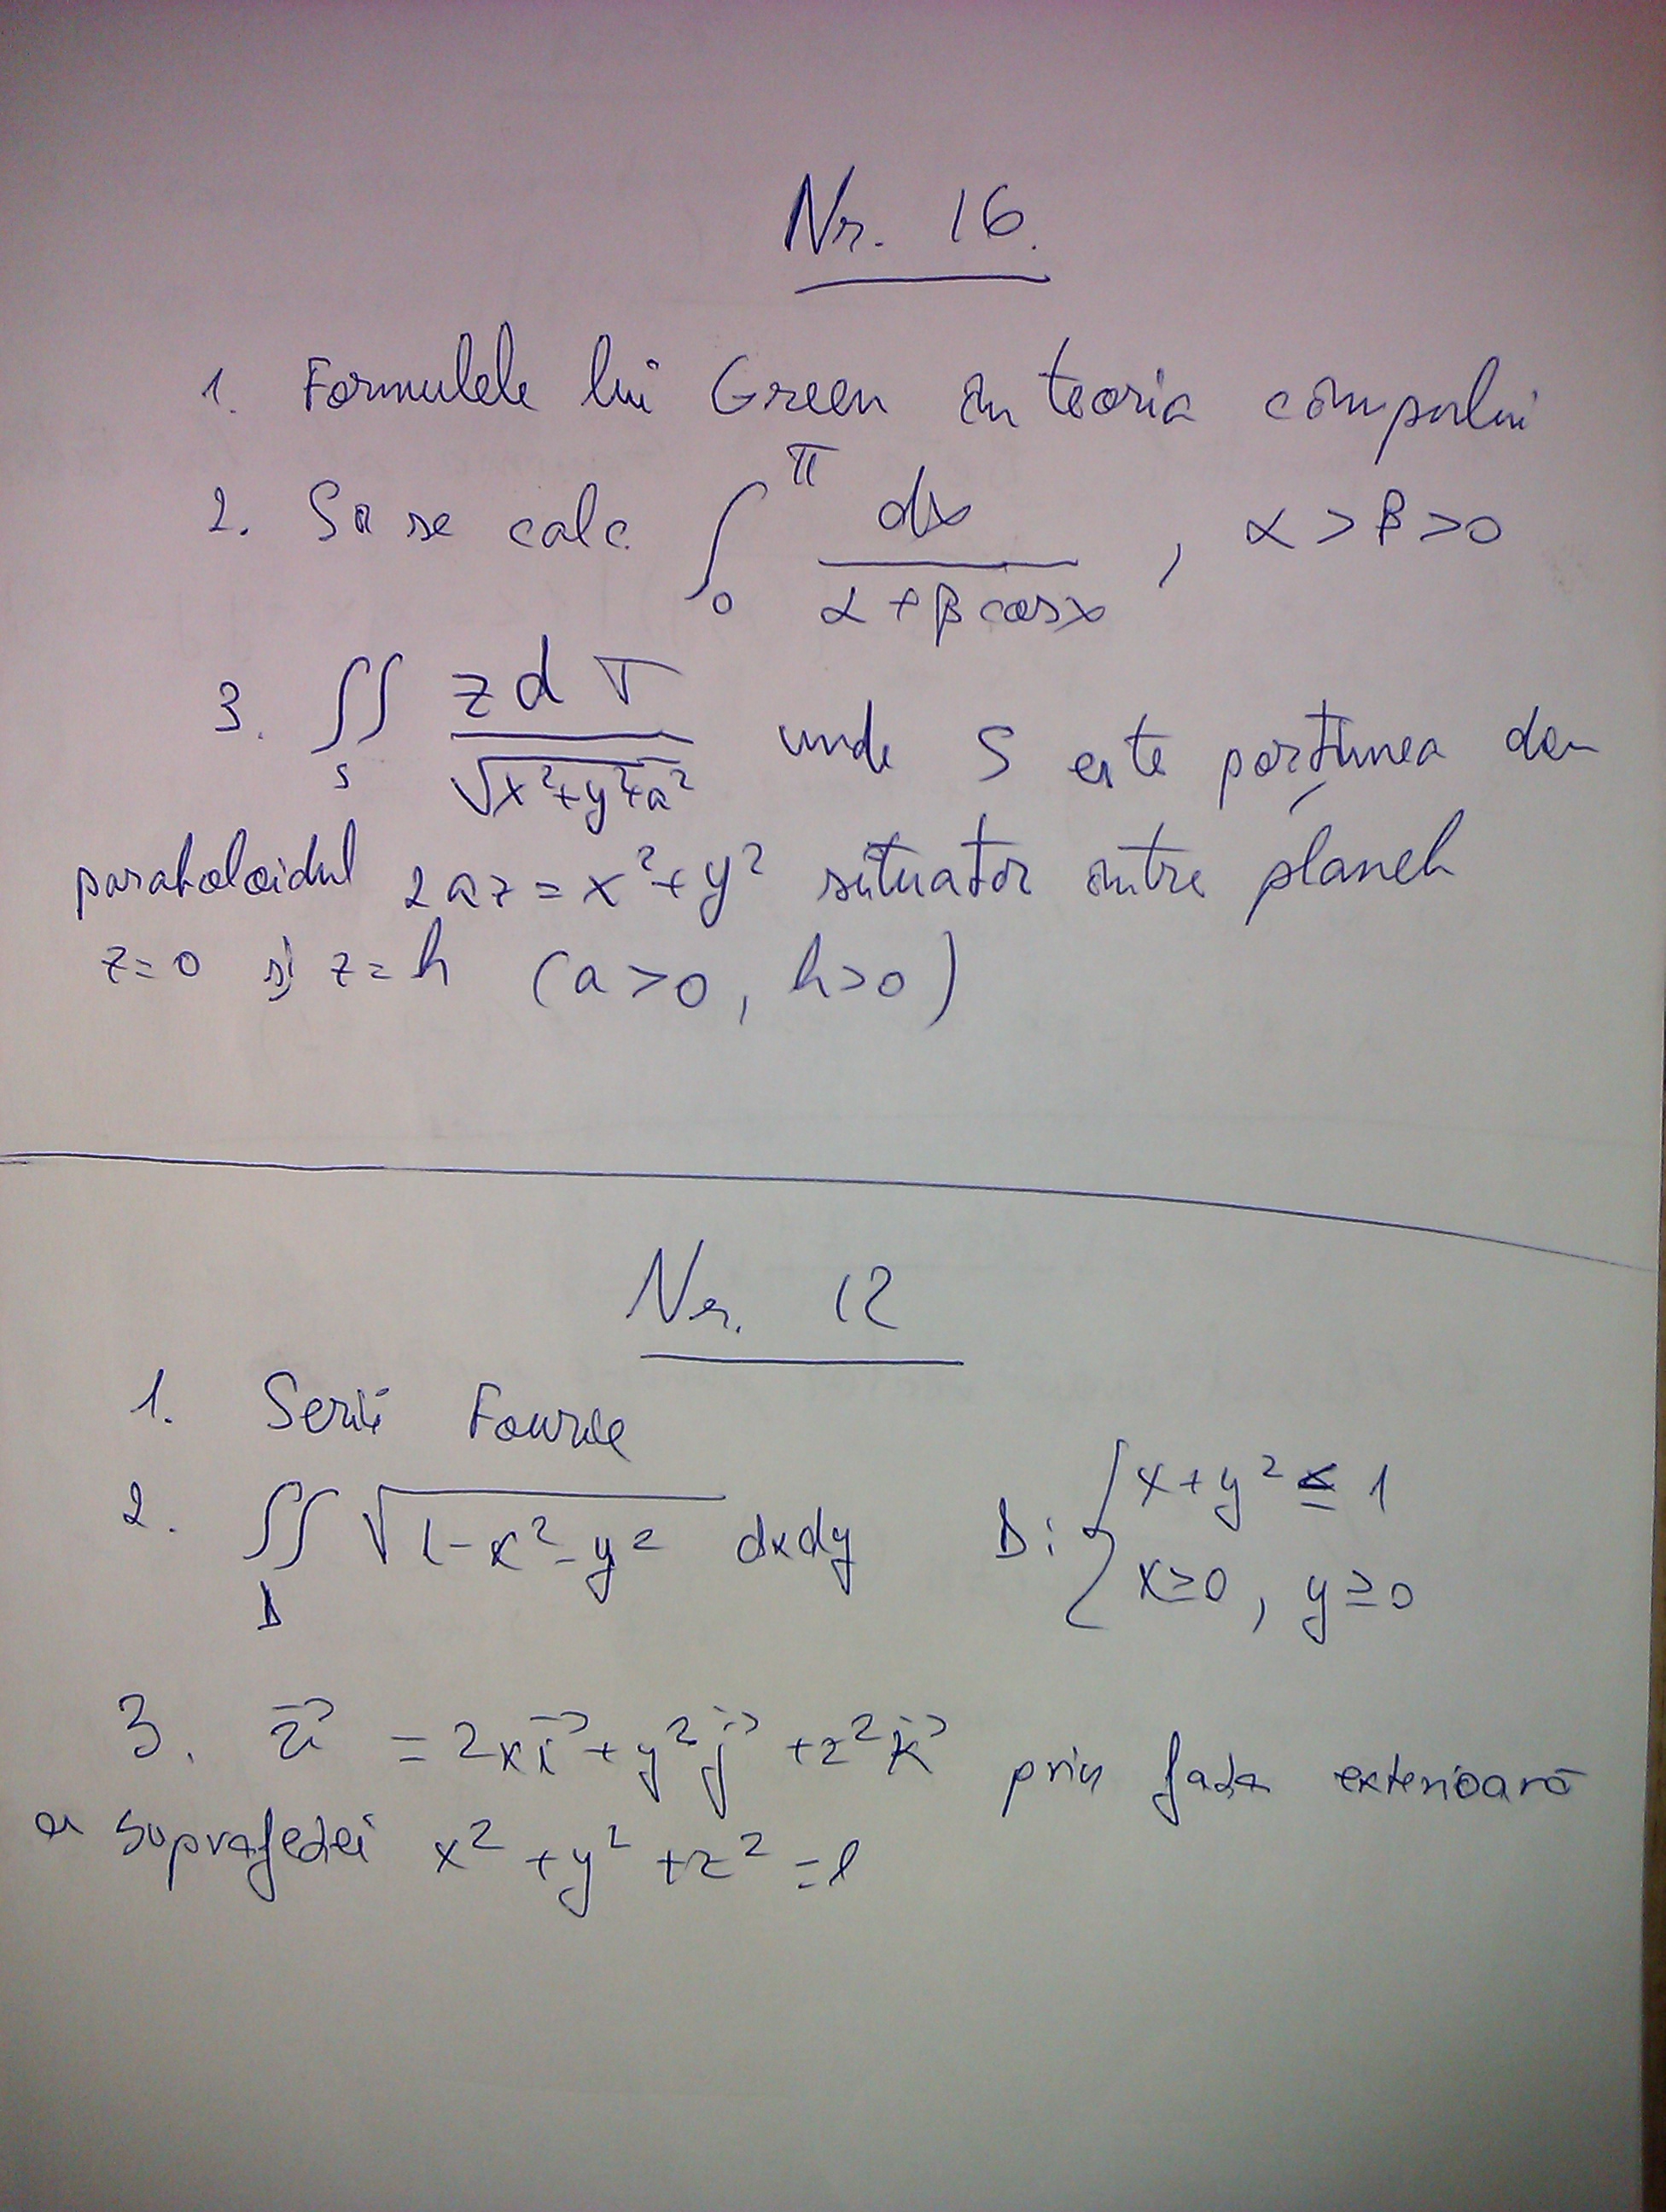 Nr. 16.
1. Formulele lui Green în teoria câmpului
2. Sa se calc. ∫₀^π dx / (α + β cosx) , α > β > 0
3. ∬_S z dσ / √(x²+y²+a²) unde S este porțiunea din
paraboloidul 2az = x² + y² situator între planele
z=0 și z=h (a>0, h>0)
Nr. 12
1. Serii Fourie
2. ∬_D √(1-x²-y²) dxdy D: { x+y² ≤ 1
x≥0, y≥0
3. = 2x i⃗ + y² j⃗ + z² k⃗ prin fața exterioară
a suprafeței x² + y² + z² = 1